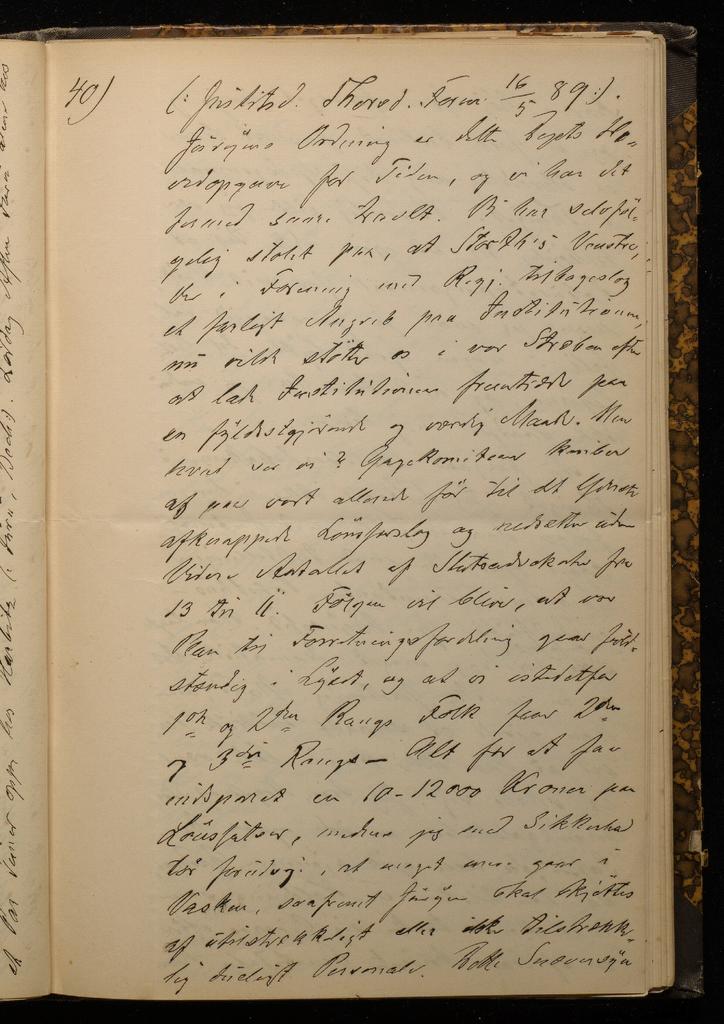 40)
(: Justitsd. Thorvd. Form. 16/5 89 :).
Juryens Ordning er dette Aars Ho-
vedopgave for Tiden, og vi har det
saare travlt. Vi har selvføl-
gelig stolet paa, at Storth's Venstre,
der i Forening med Regj. tilbageslog
et farligt Angreb paa Institutionen,
nu vilde støtte os i vor Stræben efter
at lade Institutionen fremtræde paa
en fyldestgjørende og værdig Maade. Men
hvad ser vi? Gagekomiteen kniber
af paa vort allerede før til det Yderste
afknappede Lønsforslag og nedsætter uden
Videre Antallet af Statsadvokater fra
13 til 11. Følgen vil blive, at vor
Plan til Forretningsfordeling gaar fuld-
stændig i Lyset, og at vi istedetfor
1ste og 2den Rangs Folk faar 2den
og 3die Rangs – Alt for at faa
indsparet en 10-12000 Kroner paa
Lønssatser, medens jeg med Sikkerhed
tør forudsige, at meget mere gaar i
Vasken, saafremt Juryen skal skjøttes
af utilstrækkeligt eller ikke tilstrække-
lig dueligt Personale. Dette Snæversyn
et Par Venner oppe hos